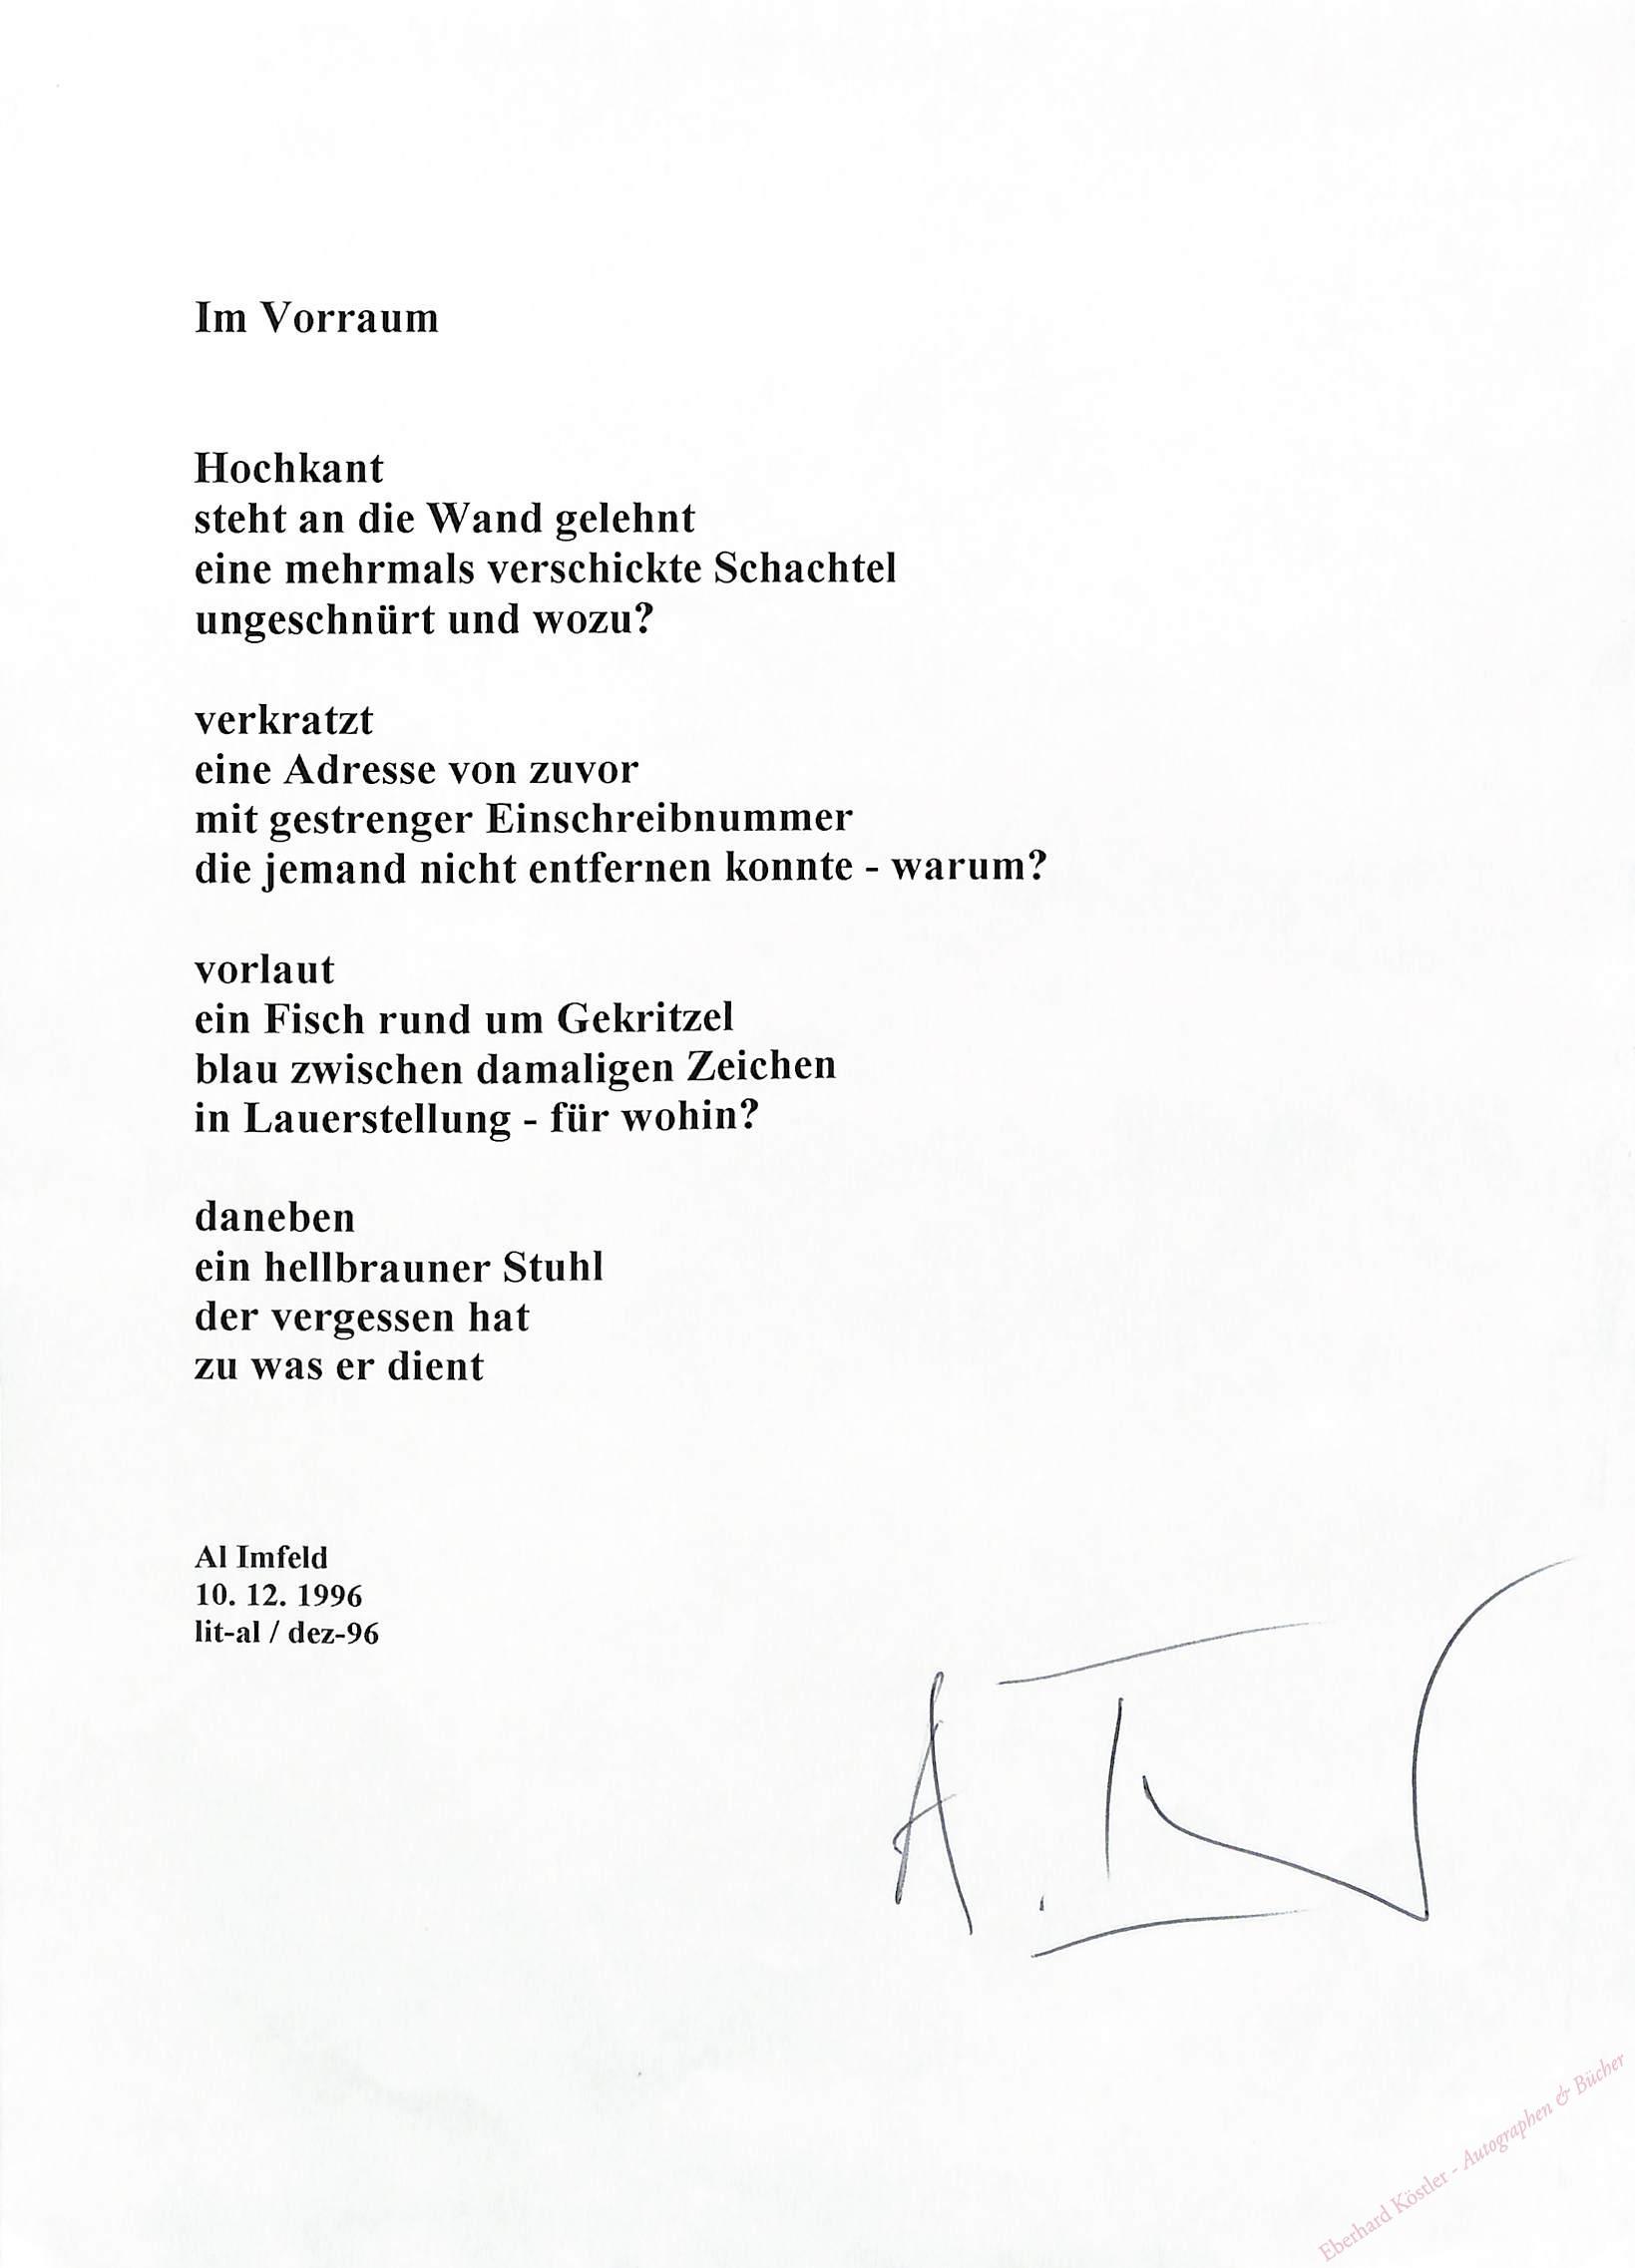 Im Vorraum
Hochkant
steht an die Wand gelehnt
eine mehrmals verschickte Schachtel
ungeschnürt und wozu?
verkratzt
eine Adresse von zuvor
mit gestrenger Einschreibnummer
die jemand nicht entfernen konnte - warum?
vorlaut
ein Fisch rund um Gekritzel
blau zwischen damaligen Zeichen
in Lauerstellung - für wohin?
daneben
ein hellbrauner Stuhl
der vergessen hat
zu was er dient
Al Imfeld
10. 12. 1996
lit-al / dez-96
Eberhard Köstler - Autographen & Bücher